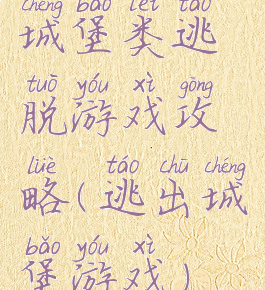 chéng bǎo lèi táo
城堡类逃
tuō yóu xì gōng
脱游戏攻
lüè táo chū chéng
略(逃出城
bǎo yóu xì
堡游戏)